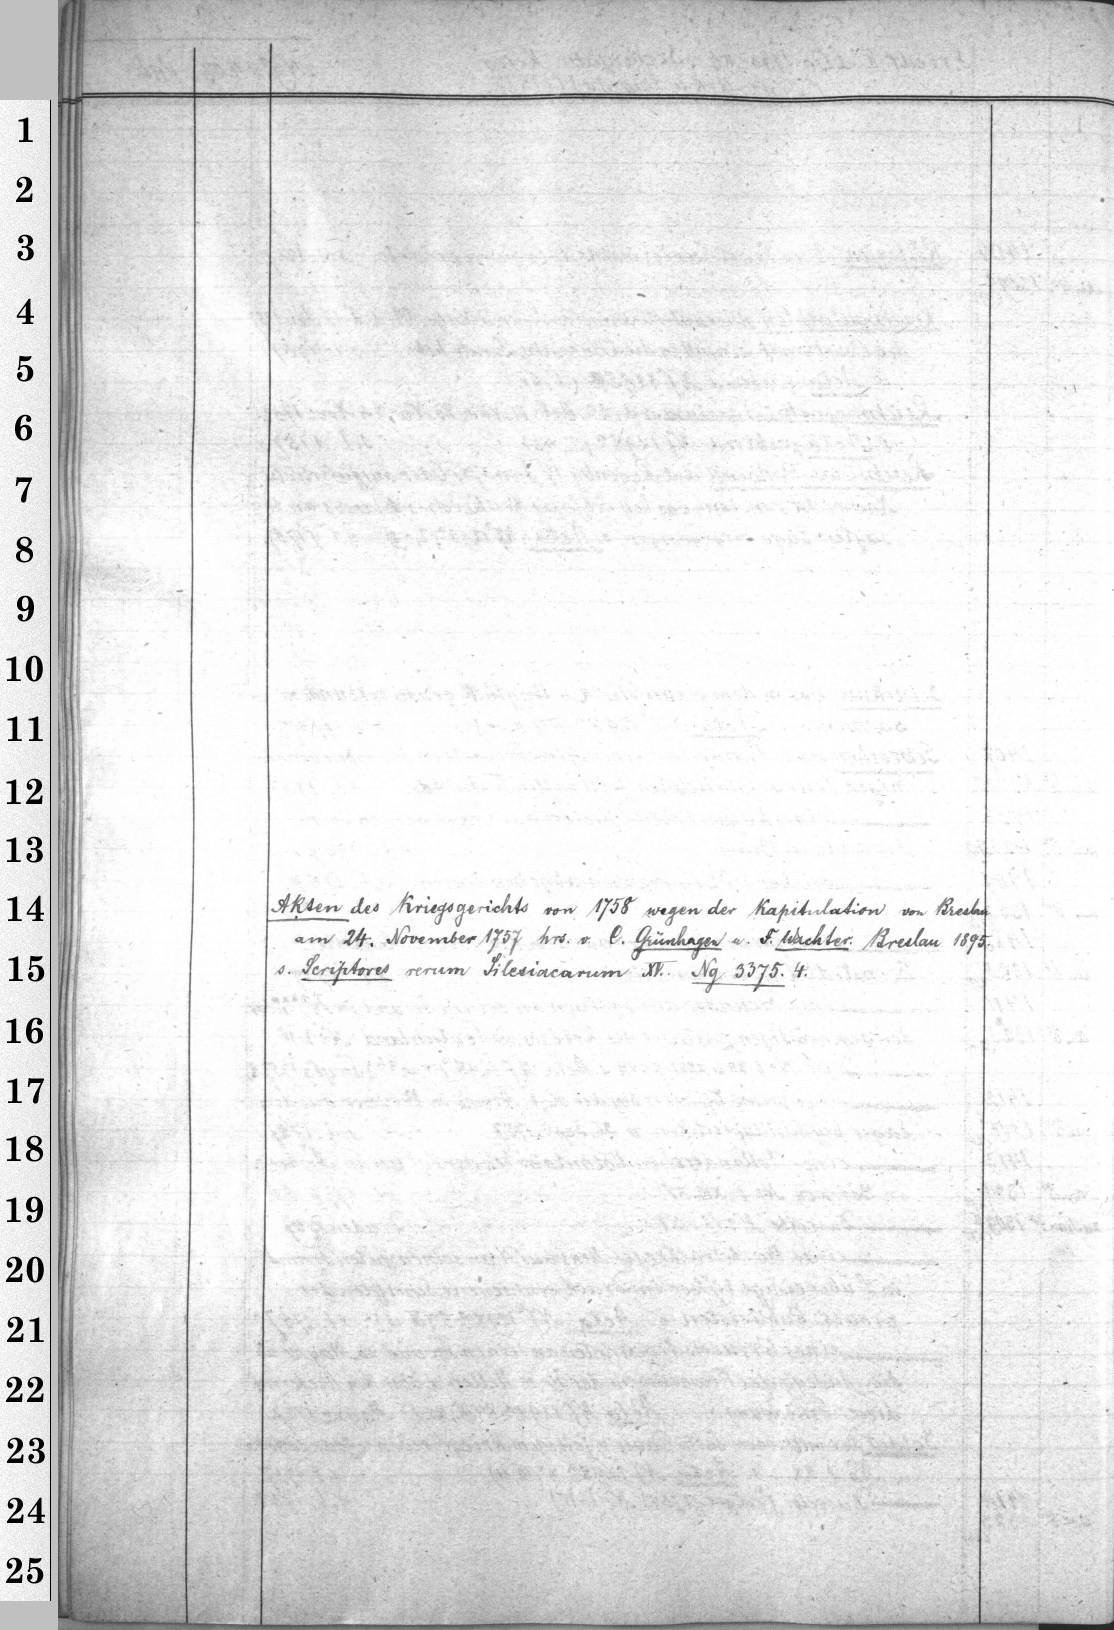 1
2
3
4
5
6
7
8
9
10
11
12
13
14
Akten des Kriegsgerichts von 1758 wegen der Kapitulation von Breslau
am 24. November 1757 hrs. v. C. Grünhagen u. F. Wachter. Breslau 1895.
15
s. Scriptores rerum Silesiacarum XV. Ng 3375. 4.
16
17
18
19
20
21
22
23
24
25